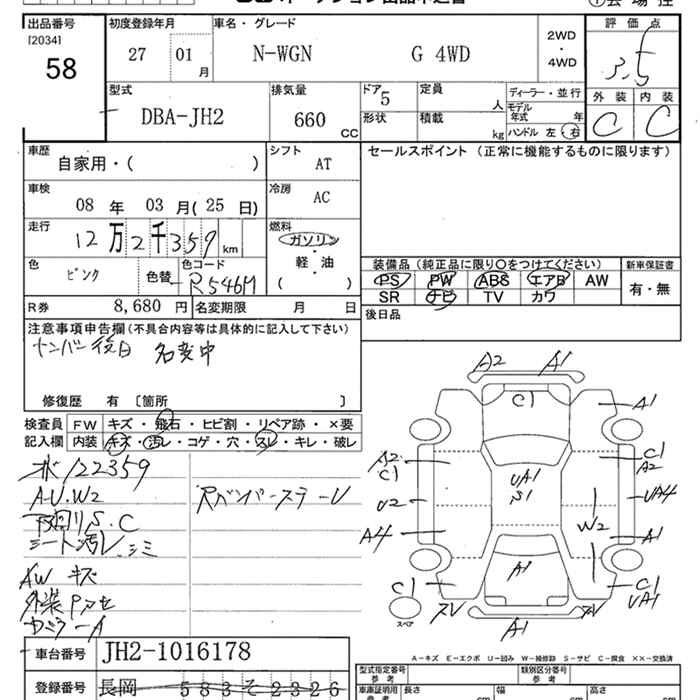 出品番号 初度登録年月 車名・グレード 評価点
[2034] 58
27 01 月 N-WGN G 4WD 2WD ・ 4WD 3.5
型式 排気量 ドア 5 定員 人 ディーラー・並行 外装 内装
DBA-JH2 660 CC 形状 積載 kg モデル年式 年 ハンドル 左・右 C C
車歴 シフト セールスポイント (正常に機能するものに限ります)
自家用・( ) AT
車検 冷房
08 年 03 月(25 日) AC
走行 燃料
12万2千359 km ガソリン
軽・油
色 色替 色コード ( )
ピンク R546M
装備品 (純正品に限り○をつけてください) 新車保証書
PS PW ABS エアB AW 有・無
SR ナビ TV カワ
R券 8,680 円 名変期限 月 日 後日品
注意事項申告欄(不具合内容等は具体的に記入して下さい)
ナンバー後日 名変中
修復歴 有 [箇所 ]
検査員 FW キズ・飛石・ヒビ割・リペア跡・×要
記入欄 内装 キズ・汚レ・コゲ・穴・スレ・キレ・破レ
122359
A.U.W2 RバンパーステーU
下回りS.C
シート汚レ.シミ
AW キズ
A2 A1
C1
A1
A2 C1 UA1 S1 C1 A2
U2 UA4
W2
A4 A1
A1
C1 C1 UA1
スペア A1
A-キズ E-エクボ U-凹み W-補修跡 S-サビ C-腐食 ××-交換済
車台番号 JH2-1016178
型式指定番号 類別区分番号
登録番号 長岡 583 そ 2326
車庫証明用 参考 長さ cm 幅 cm 高さ cm